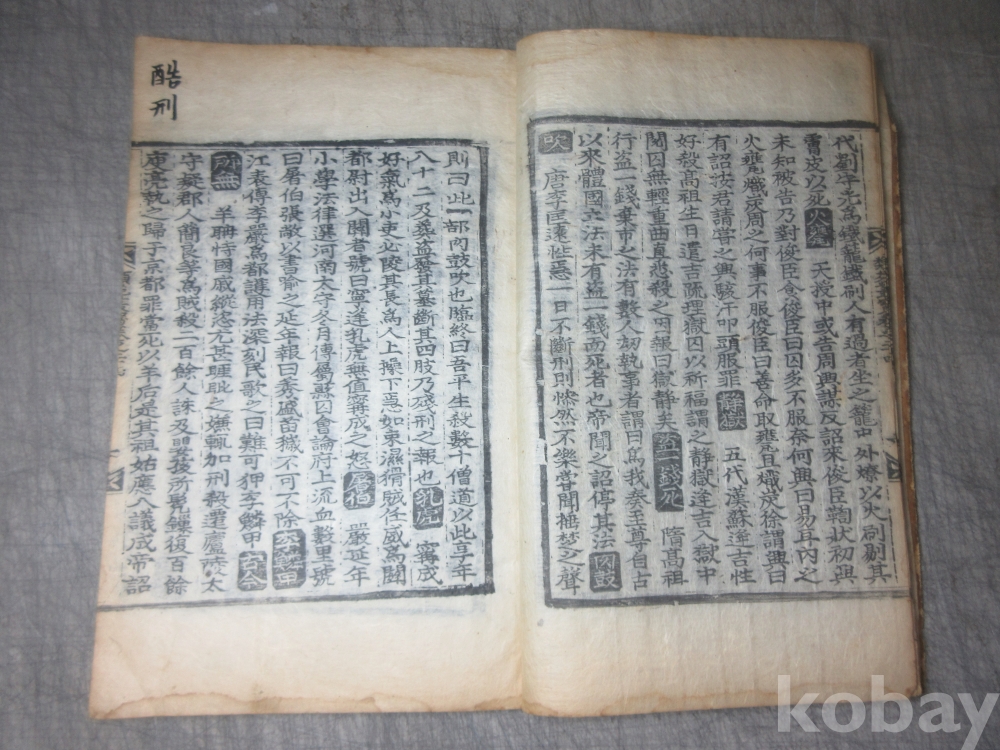 代劉守光為鐵籠鐵刷人有過者坐之籠中外燎以火刷剔其
膚皮以死 火甕 天授中或告周興謀反詔來俊臣鞫狀初興
未知被告乃對俊臣食俊臣曰囚多不服奈何興曰易耳內之
火甕熾炭周之何事不服俊臣曰善命取甕且熾炭徐謂興曰
有詔按君請嘗之興駭汗叩頭服罪 靜獄 五代漢蘇逢吉性
好殺高祖生日遣吉疏理獄囚以祈福謂之靜獄逢吉入獄中
閱囚無輕重曲直悉殺之因報曰獄靜矣 盜一錢死 隋高祖
行盜一錢棄市之法有數人劫執事者謂曰為我奏至尊自古
以來體國立法未有盜一錢而死者也帝聞之詔停其法 肉鼓
吹 唐李匡遠性急一日不斷刑則慘然不樂嘗聞捶楚之聲
酷刑
則曰此一部肉鼓吹也臨終曰吾平生殺數千僧道以此享年
八十二及葬盜發其墓斷其四肢乃殘刑之報也 乳虎 甯成
好氣為小吏必陵其長為人上操下急如束濕猾賊任威為關
都尉出入關者號曰寧逢乳虎無值甯成之怒 屠伯 嚴延年
小學法律選河南太守冬月傳屬縣囚會論府上流血數里號
曰屠伯張敞以書喻之延年報曰莠盛苗穢不可不除
江表傳李嚴為都護用法深刻民歌之曰難可狎李鱗甲 古今
所無 羊聃恃國戚縱恣尤甚睚眦之嫌輒加刑殺遷廬陵太
守疑郡人簡良等為賊殺二百餘人誅及嬰孩所髡鎖復百餘
庾亮執之歸于京都罪當死以羊后是其祖姑應八議成帝詔
kobay